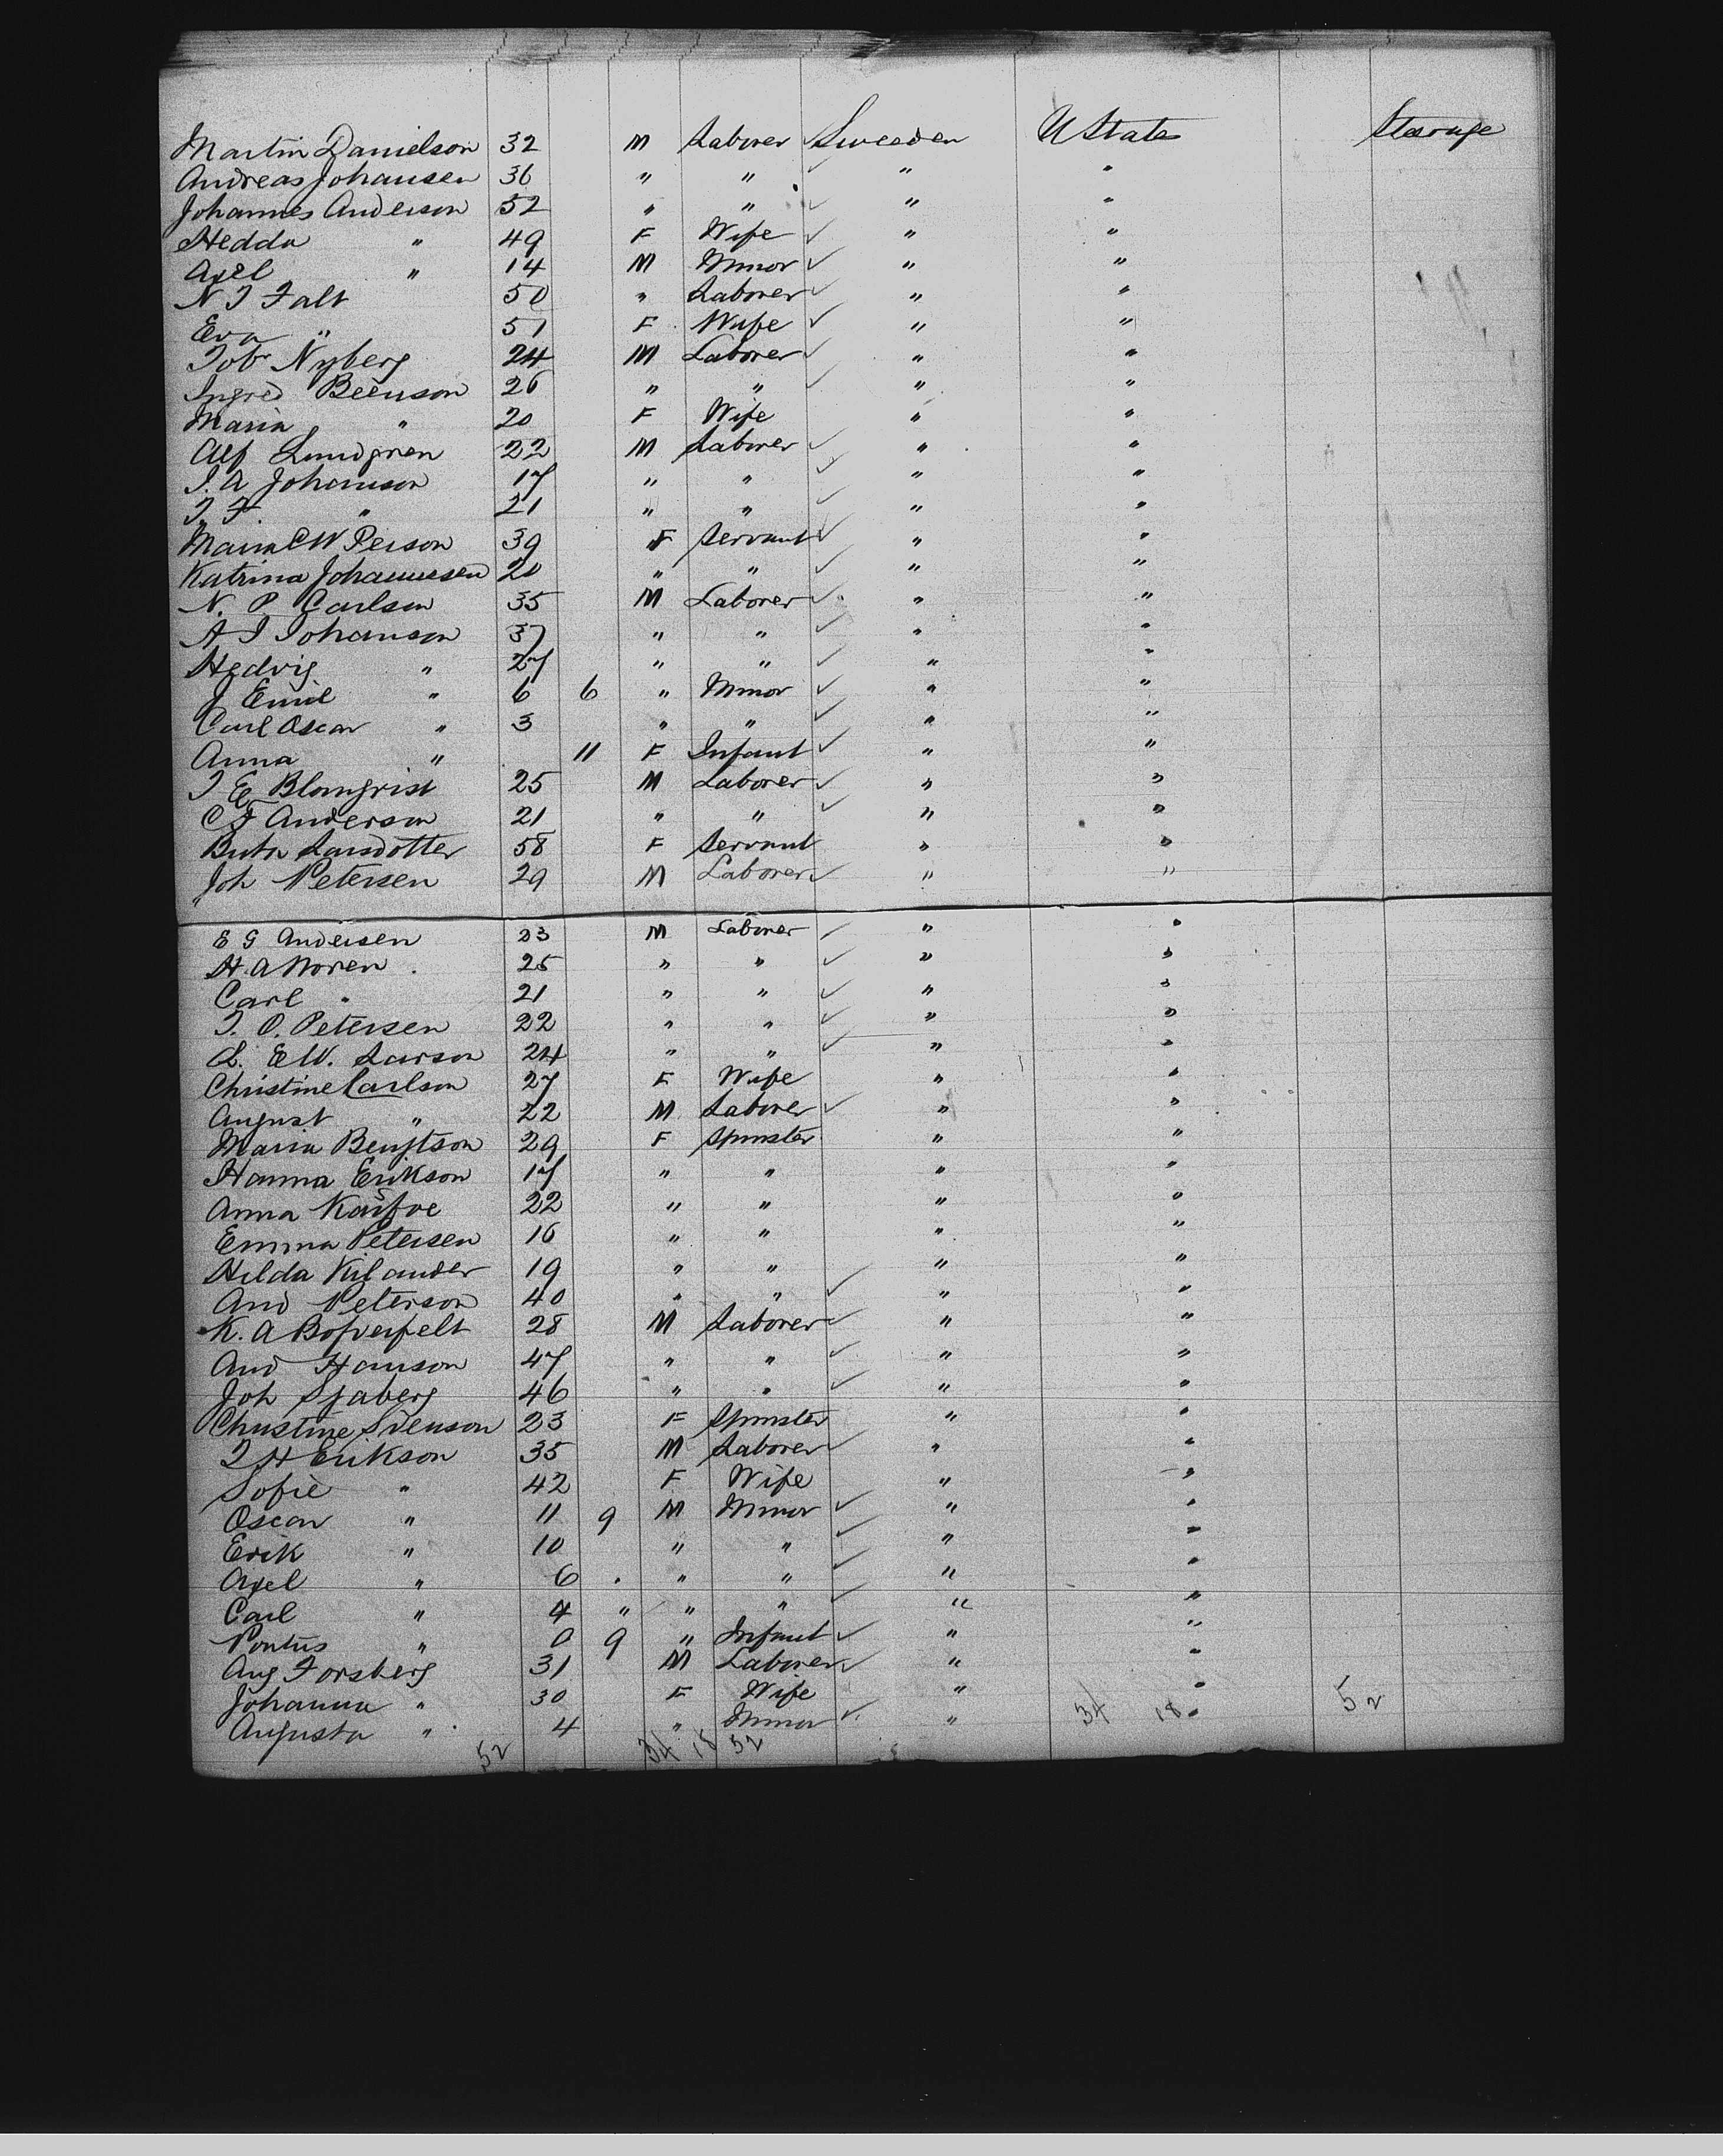 Martin Danielson 32 M Laborer Sweeden U States Steerage
Andreas Johansen 36 " " " "
Johannes Anderson 52 " " " "
Hedda " 49 F Wife " "
Axel " 14 M Minor " "
N J Falt 50 " Laborer " "
Eva " 51 F Wife " "
Job Nyberg 24 M Laborer " "
Ingred Beenson 26 " " " "
Maria " 20 F Wife " "
Alf Lundgren 22 M Laborer " "
J. A Johanson 17 " " " "
J. F. " 21 " " " "
Maria C W Person 39 F Servant " "
Katrina Johannesen 20 " " " "
N. P Carlson 35 M Laborer " "
A J Johanson 37 " " " "
Hedvig " 27 " " " "
J Emil " 6 6 " Minor " "
Carl Oscar " 3 " " " "
Anna " 11 F Infant " "
J E Blomqrist 25 M Laborer " "
C F Anderson 21 " " " "
Larsdotter 58 F Servant " "
Joh Petersen 29 M Laborer " "
E G Andersen 23 M Laborer " "
H. A Noren 25 " " " "
Carl " 21 " " " "
J. O. Petersen 22 " " " "
L. E W. Larson 24 " " " "
Christine Carlson 27 F Wife " "
August " 22 M Laborer " "
Maria Bengtson 29 F Spinster " "
Hanna Erikson 17 " " " "
Anna 22 " " " "
Emma Petersen 16 " " " "
Hilda Kilander 19 " " " "
And Peterson 40 " " " "
K. A 28 M Laborer " "
And Hanson 47 " " " "
Joh Sjaberg 46 " " " "
Christine Svenson 23 F Spinster " "
J H Erikson 35 M Laborer " "
Sofie " 42 F Wife " "
Oscar " 11 9 M Minor " "
Erik " 10 " " " "
Axel " 6 . " " " "
Carl " 4 " " " " "
Pontus " 0 9 " Infant " "
Aug Forsberg 31 M Laborer " "
Johanna " 30 F Wife " "
Augusta " 4 " Minor " 34 18 " 52
52 34 18 52